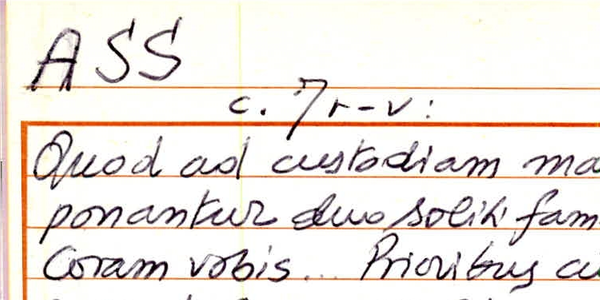 ASS
c. 7 r-v:
Quod ad custodiam ma
ponantur duo soliti fam
Coram vobis... Prioribus ci